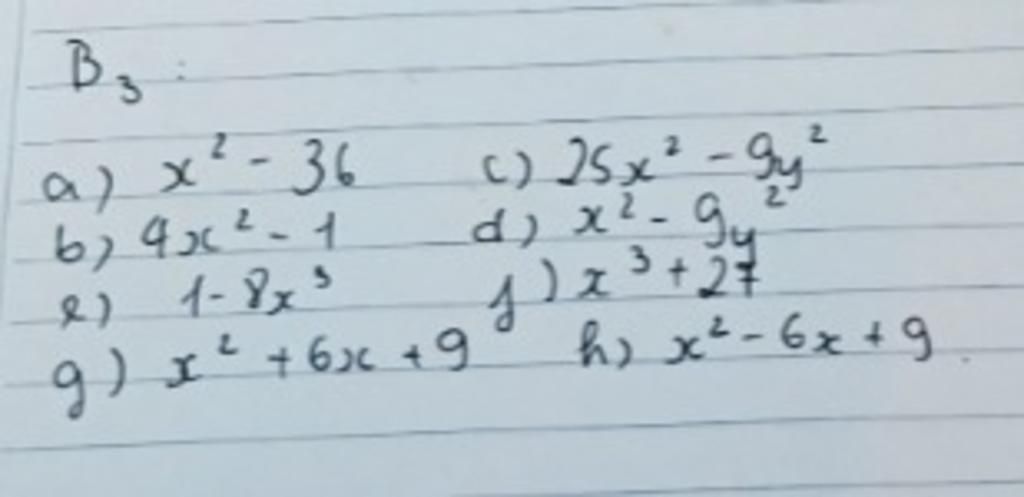 B₃ :
a) x² - 36 c) 25x² - 9y²
b) 4x² - 1 d) x² - 9y²
e) 1 - 8x³ f) x³ + 27
g) x² + 6x + 9 h) x² - 6x + 9.